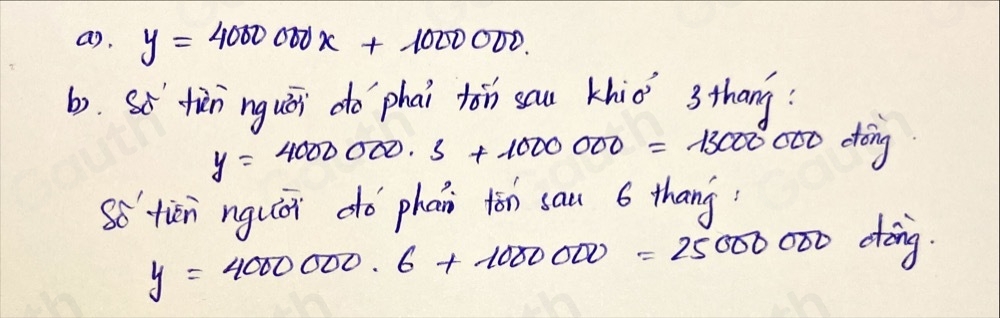 a). y = 4000 000x + 1000 000.
b). Số tiền người đó phải tốn sau khi ở 3 tháng:
y = 4000 000 . 3 + 1000 000 = 13000 000 đồng.
Số tiền người đó phải tốn sau 6 tháng:
y = 4000 000 . 6 + 1000 000 = 25 000 000 đồng.